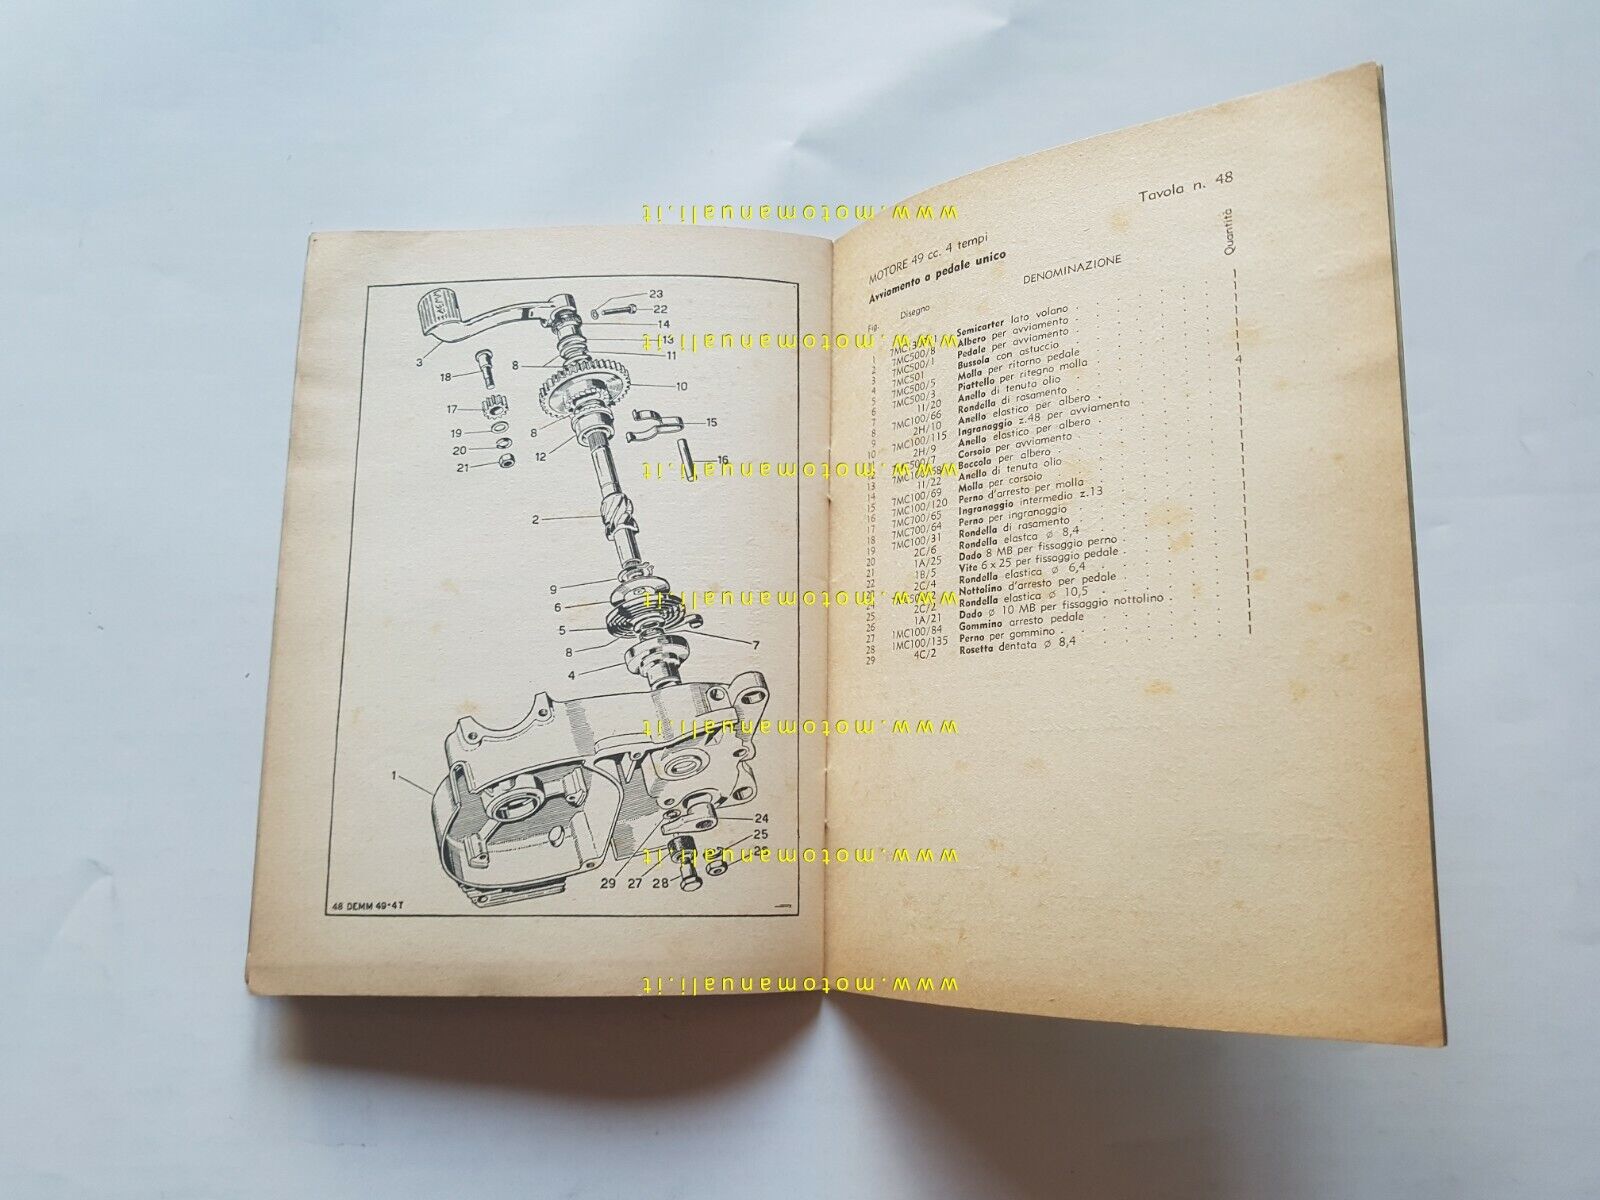 23
22
14
13
11
3
8
18
10
17
15
8
19
20
12
21
16
2
9
6
5
7
8
4
1
24
25
26
29 27
28
48 DEMM 49-4T
Tavola n. 48
MOTORE 49 cc. 4 tempi
Avviamento a pedale unico
Fig. Disegno DENOMINAZIONE Quantità
1 Semicarter lato volano
2 7MC500/8 Albero per avviamento
3 7MC500/1 Pedale per avviamento
4 7MC501 Bussola con astuccio
5 7MC500/5 Molla per ritorno pedale
6 7MC500/3 Piattello per ritegno molla
7 11/20 Anello di tenuta olio
8 7MC100/66 Rondella di rasamento 4
9 2H/10 Anello elastico per albero
10 7MC100/115 Ingranaggio z.48 per avviamento
11 2H/9 Anello elastico per albero
12 7MC500/7 Corsoio per avviamento
13 Boccola per albero
14 11/22 Anello di tenuta olio
15 7MC100/69 Molla per corsoio
16 7MC100/120 Perno d'arresto per molla
17 7MC700/65 Ingranaggio intermedio z.13
18 7MC700/64 Perno per ingranaggio
19 7MC100/31 Rondella di rasamento
20 2C/6 Rondella elastca ø 8,4
21 1A/25 Dado 8 MB per fissaggio perno
22 1B/5 Vite 6 x 25 per fissaggio pedale
23 2C/4 Rondella elastica ø 6,4
24 Nottolino d'arresto per pedale
25 2C/2 Rondella elastica ø 10,5
26 1A/21 Dado ø 10 MB per fissaggio nottolino
27 1MC100/84 Gommino arresto pedale
28 1MC100/135 Perno per gommino
29 4C/2 Rosetta dentata ø 8,4
www.motomanuali.it
www.motomanuali.it
www.motomanuali.it
www.motomanuali.it
www.motomanuali.it
www.motomanuali.it
www.motomanuali.it